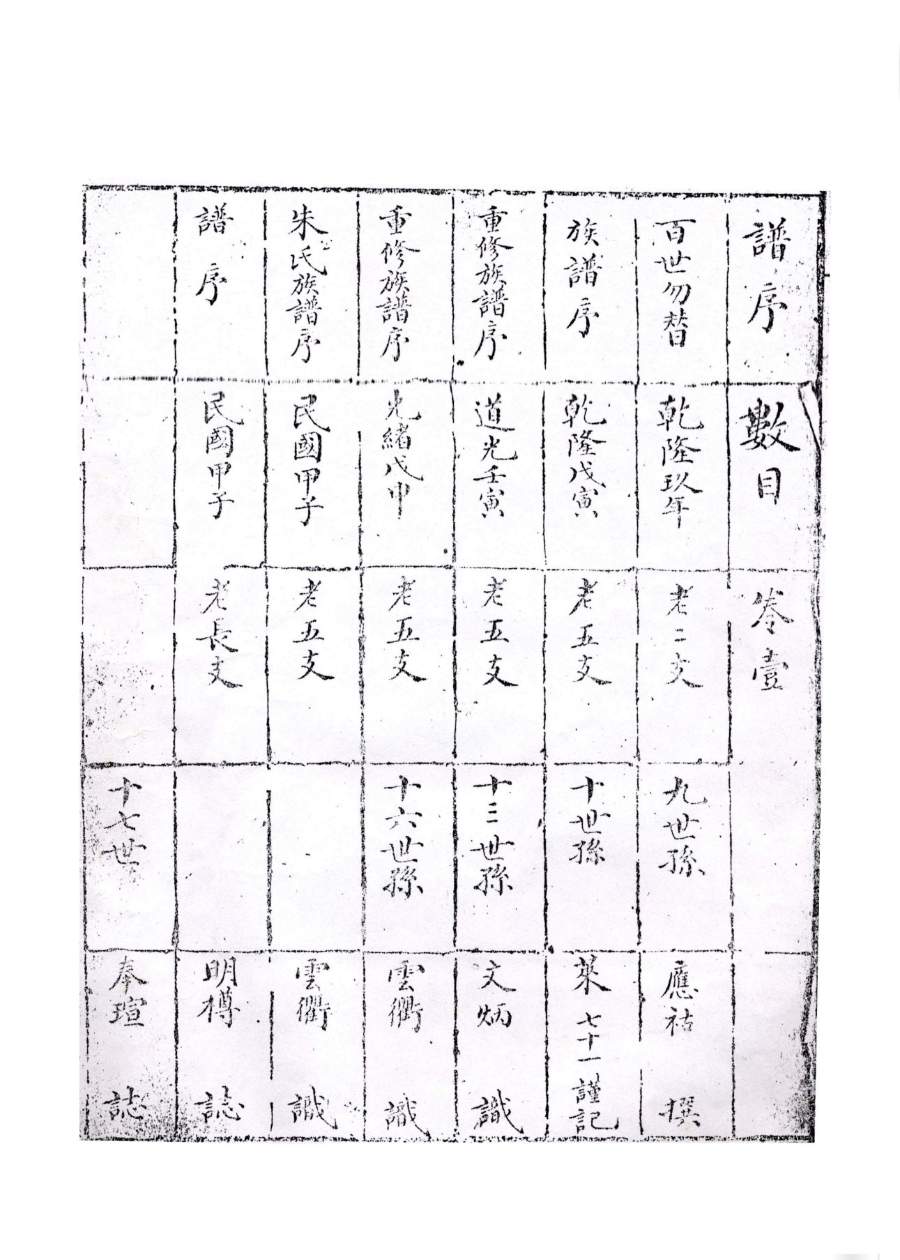 譜序 數目 卷壹
百世勿替 乾隆玖年 老二支 九世孫 應祜 撰
族譜序 乾隆戊寅 老五支 十世孫 萊 七十一 謹記
重修族譜序 道光壬寅 老五支 十三世孫 文炳 識
重修族譜序 光緒戊申 老五支 十六世孫 雲衢 識
朱氏族譜序 民國甲子 老五支 雲衢 識
譜序 民國甲子 老長支 明樽 誌
十七世 奉瑄 誌